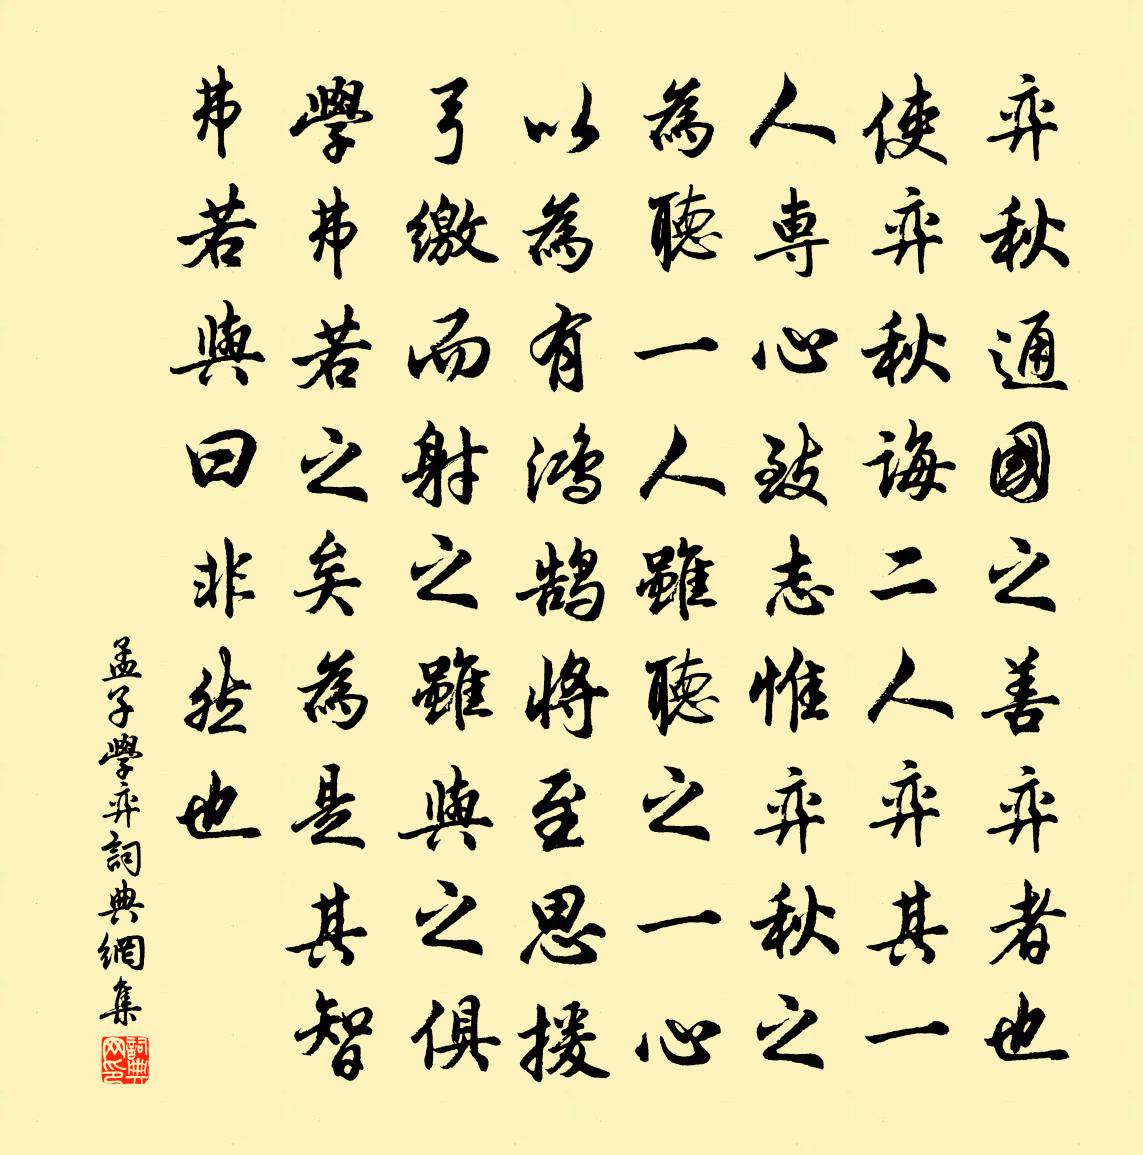 弈秋通國之善弈者也
使弈秋誨二人弈其一
人専心致志惟弈秋之
為聽一人雖聽之一心
以為有鴻鵠將至思援
弓繳而射之雖與之俱
學弗若之矣為是其智
弗若與曰非然也
孟子學弈詞典網集
詞典
网印